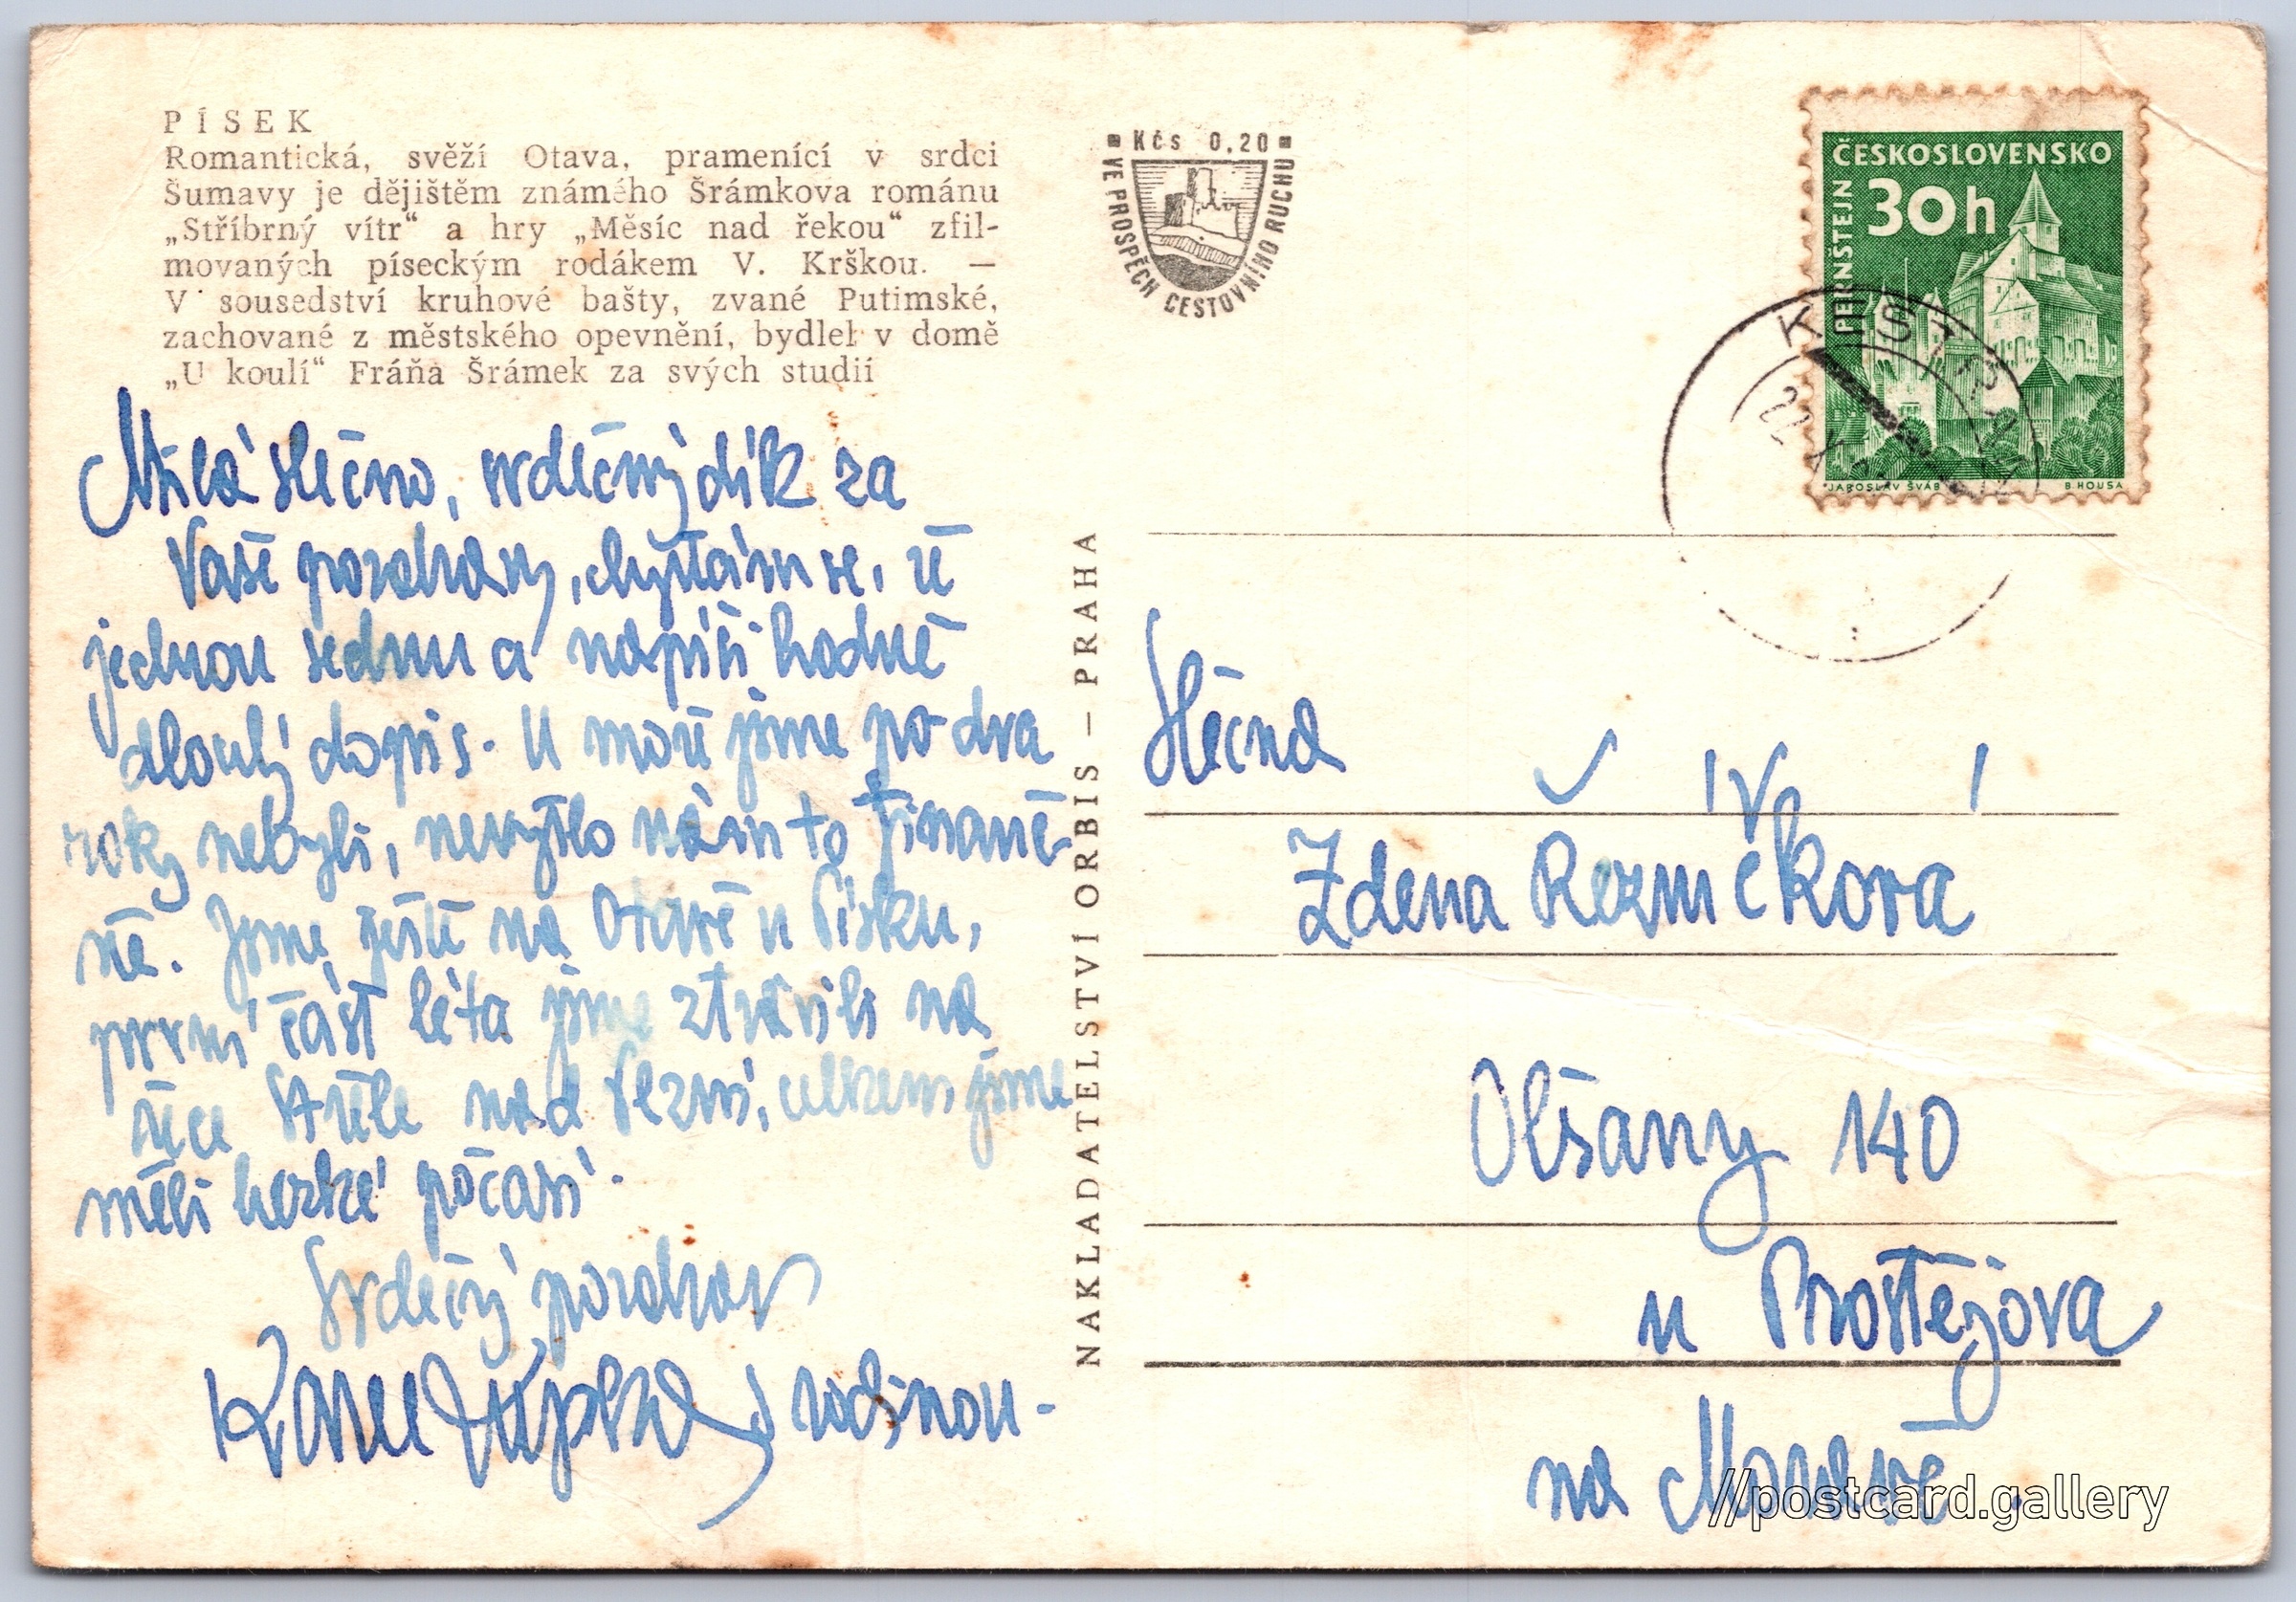 PÍSEK
Romantická, svěží Otava, pramenící v srdci
Šumavy je dějištěm známého Šrámkova románu
„Stříbrný vítr“ a hry „Měsíc nad řekou“ zfil-
movaných píseckým rodákem V. Krškou. —
V sousedství kruhové bašty, zvané Putimské,
zachované z městského opevnění, bydlel v domě
„U koulí“ Fráňa Šrámek za svých studií
Milá slečno, srdečný dík za
Vaše pozdravy, chystám se, že
jednou sednu a napíši hodně
dlouhý dopis. U moře jsme po dva
roky nebyli, nevyšlo nám to finanč-
ně. Jsme ještě na Otavě u Písku,
první část léta jsme ztrávili na
řece Střele nad Plzní, celkem jsme
měli hezké počasí.
Srdečný pozdrav
Karel s rodinou.
NAKLADATELSTVÍ ORBIS — PRAHA
Kčs 0,20
VE PROSPĚCH CESTOVNÍHO RUCHU
ČESKOSLOVENSKO
30h
PERNŠTEJN
JAROSLAV ŠVÁB
B. HOUSA
Slečna
Zdena Řezníčková
Olšany 140
u Prostějova
na Moravě.
//postcard.gallery